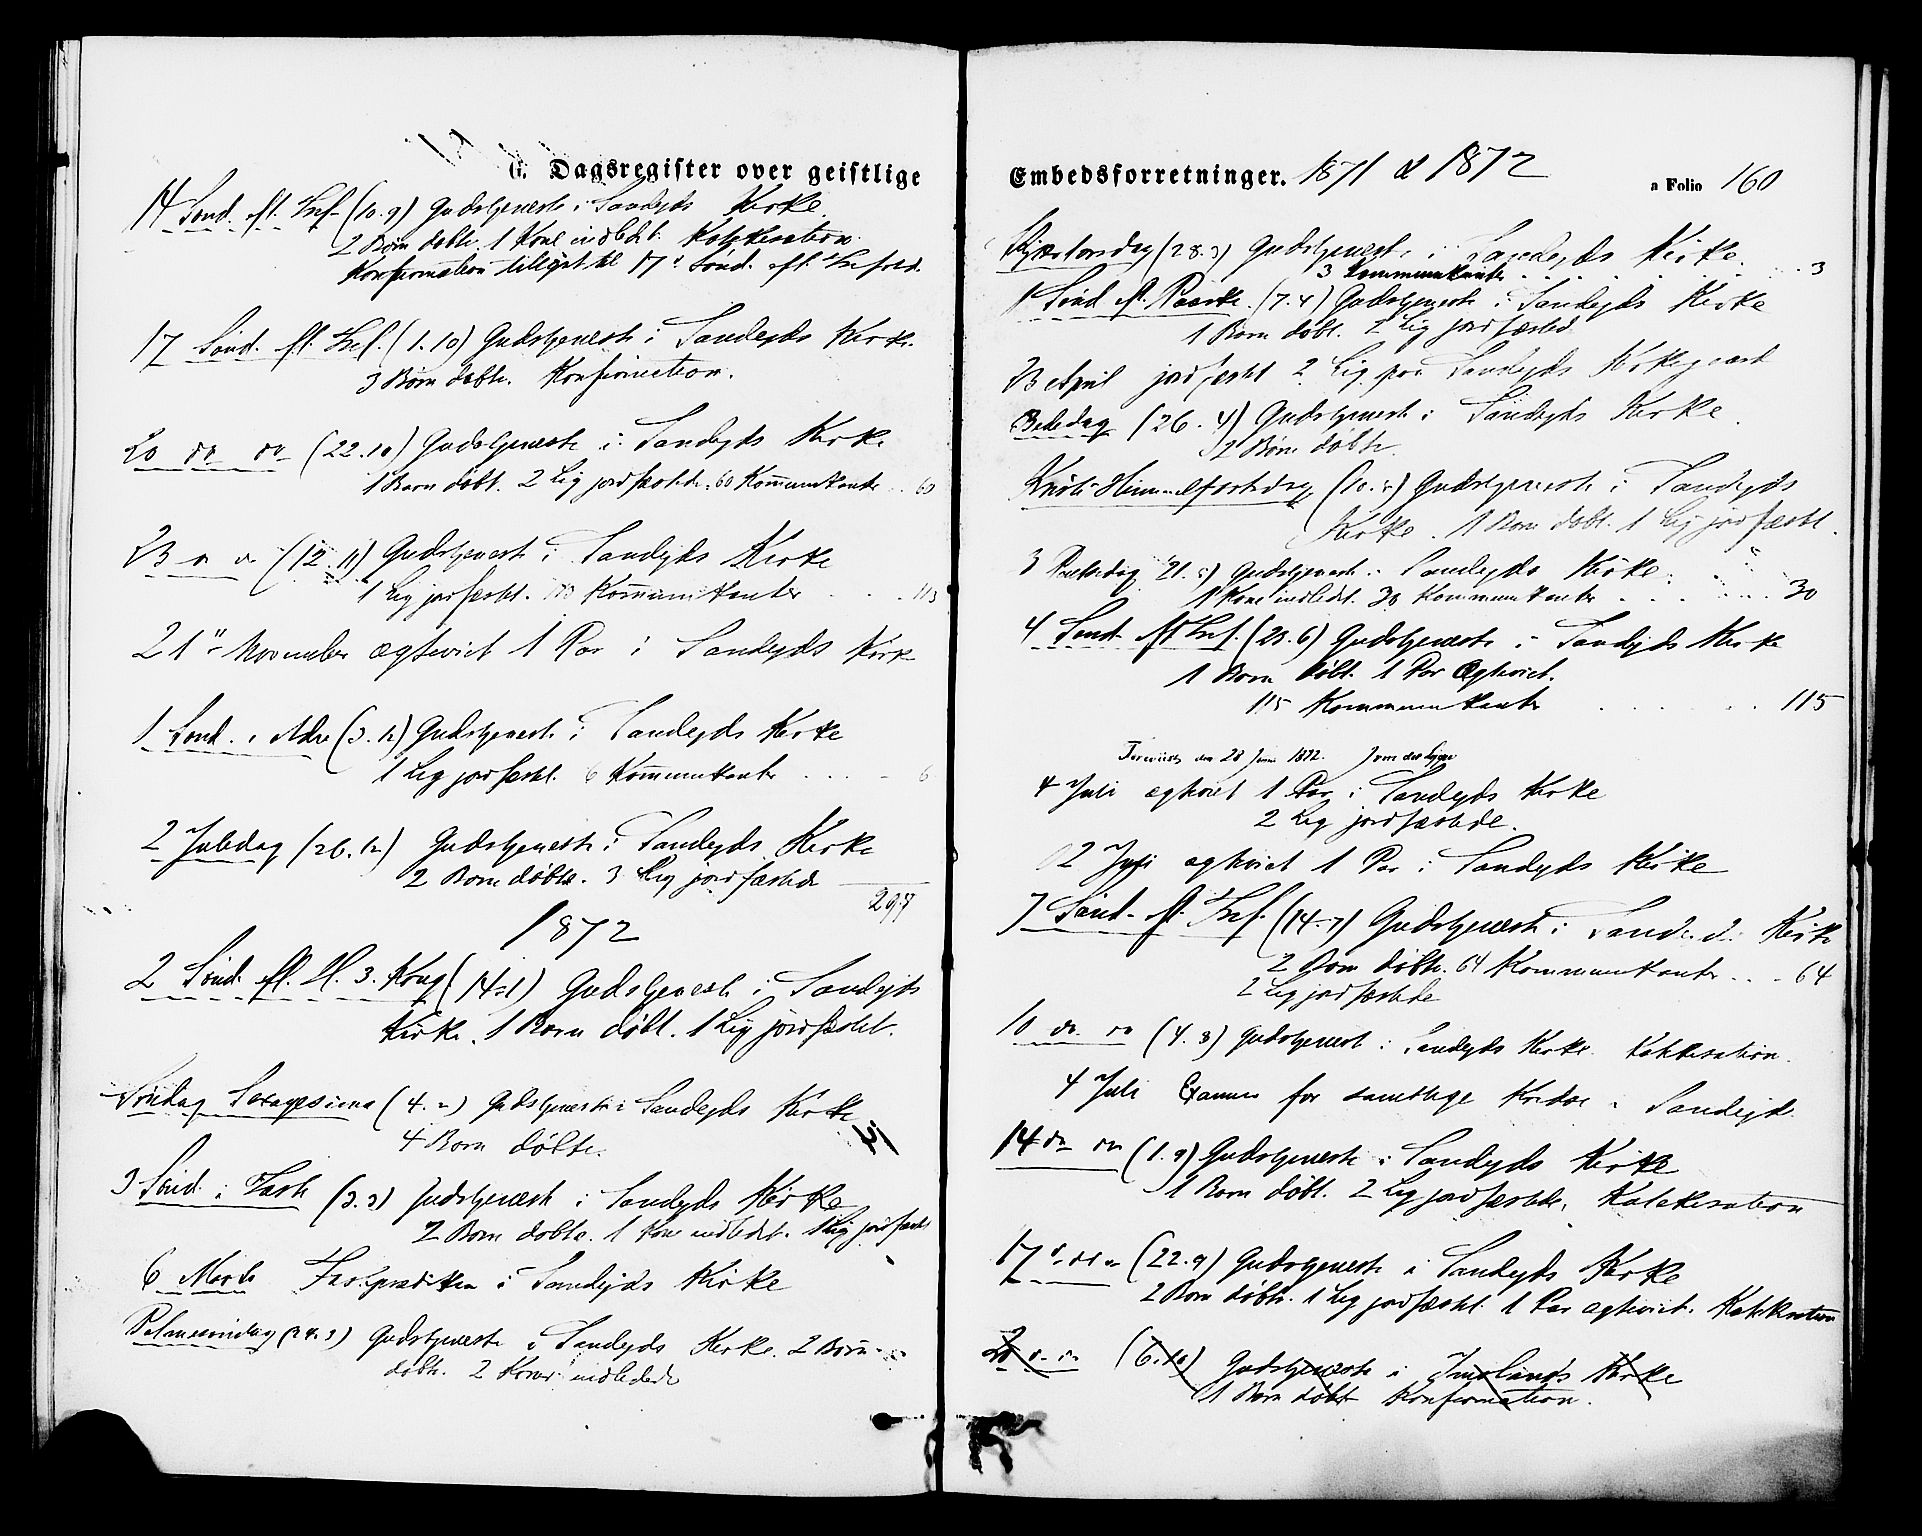 G. Dagsregister over geistlige
14 Sønd. eft. Tref. (10.9) Gudstjeneste i Sandejds Kirke.
2 Børn døbte. 1 Kone indledet. Katekisation.
Konfirmation tillyst til 17de Sønd. eft. Trefold.
17 Sønd. eft. Tref. (1.10) Gudstjeneste i Sandejds Kirke.
3 Børn døbte. Konfirmation.
20 do do (22.10) Gudstjeneste i Sandejds Kirke
1 Barn døbt. 2 Lig jordfæstede. 60 Kommunikanter .. 60
23 " " (12.11) Gudstjeneste i Sandejds Kirke
1 Lig jordfæstet. 113 Kommunikanter . . . 113
21de November ægteviet 1 Par i Sandejds Kirke
1 Sønd. i Adv. (3.12) Gudstjeneste i Sandejds Kirke
1 Lig jordfæstet. 6 Kommunikanter . . . . 6
2 Juledag (26.12) Gudstjeneste i Sandejds Kirke
2 Børn døbte. 3 Lig jordfæstede
297
1872
2 Sønd. eft. H. 3. Kong. (14.1) Gudstjeneste i Sandejds
Kirke. 1 Barn døbt. 1 Lig jordfæstet.
Søndag Sexagesima (4.2) Gudstjeneste i Sandejds Kirke
4 Børn døbte.
3 Sønd. i Faste (3.3) Gudstjeneste i Sandejds Kirke
2 Børn døbte. 1 Kone indledet. 1 Lig jordfæstet
6 Marts Fasteprædiken i Sandejds Kirke
Palmesøndag (24.3) Gudstjeneste i Sandejds Kirke. 2 Børn
døbte. 2 Koner indledede
Embedsforretninger. 1871 & 1872
a Folio 160
Skjærtorsdag (28.3) Gudstjeneste i Sandejds Kirke.
3 Kommunikanter . . . . . . 3
1 Sønd. eft. Paaske. (7.4) Gudstjeneste i Sandejds Kirke
1 Barn døbt. 2 Lig jordfæsted.
23 April jordfæstet 2 Lig paa Sandejds Kirkegaard
Bededag (26.4) Gudstjeneste i Sandejds Kirke.
2 Børn døbte.
Kristi Himmelfartsdag (10.5) Gudstjeneste i Sandejds
Kirke. 1 Barn døbt. 1 Lig jordfæstet.
3 Pinksedag (21.5) Gudstjeneste i Sandejds Kirke.
1 Kone indledet. 30 Kommunikanter . . . . . 30
4 Sønd. eft. Tref. (23.6) Gudstjeneste i Sandejds Kirke
1 Barn døbt. 1 Par Ægteviet.
115 Kommunikanter . . . . . . 115
den 28 Juni 1872.
4 Juli ægteviet 1 Par i Sandejds Kirke
2 Lig jordfæstede.
12 Juli ægteviet 1 Par i Sandejds Kirke
7 Sønd. eft. Tref. (14.7) Gudstjeneste i Sandejds Kirke
2 Børn døbte. 64 Kommunikanter . . . 64
2 Lig jordfæstede
10 do. do (4.8) Gudstjeneste i Sandejds Kirke. Katekisation.
4 Juli Examen for samtlige Kredse i Sandejd.
14 do do (1.9) Gudstjeneste i Sandejds Kirke
1 Barn døbt. 2 Lig jordfæstede. Katekisation
17 do do (22.9) Gudstjeneste i Sandejds Kirke
2 Børn døbte. 1 Lig jordfæstet. 1 Par ægteviet. Katekisation
20 do do (6.10) Gudstjeneste i Imslands Kirke
1 Barn døbt Konfirmation.